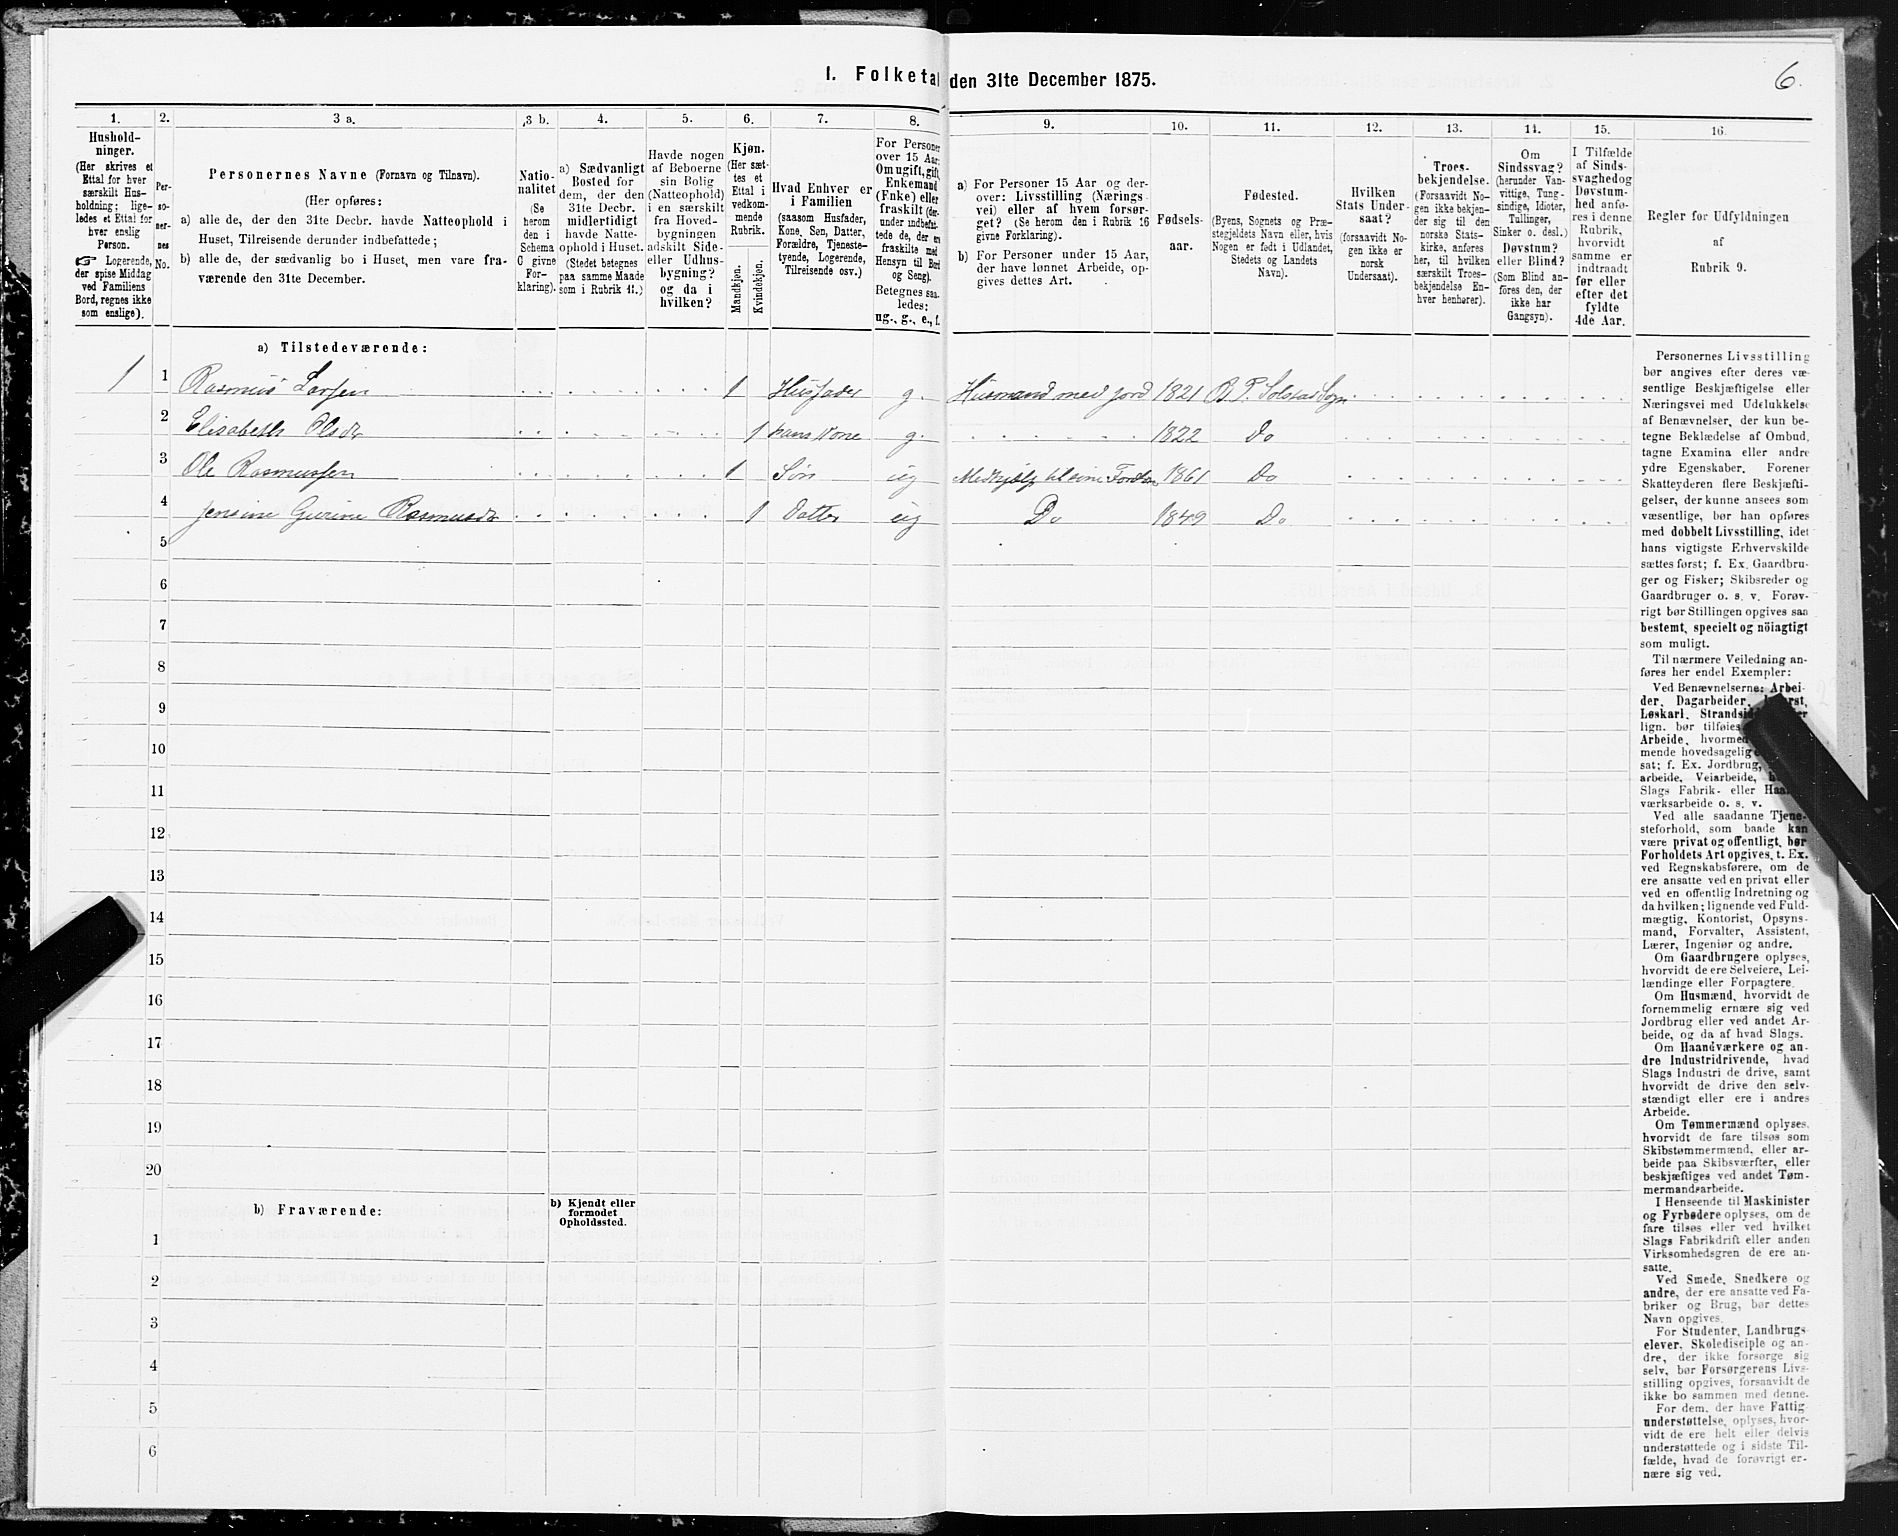 I. Folketal den 31te December 1875.
6.
1.
2.
3 a.
3 b.
4.
5.
6.
7.
8.
9.
10.
11.
12.
13.
14.
15.
16.
Hushold-
ninger.
(Her skrives et
Ettal for hver
særskilt Hus-
holdning; lige-
ledes et Ettal for
hver enslig
Person.
☞ Logerende,
der spise Middag
ved Familiens
Bord, regnes ikke
som enslige).
Per-
so-
ner-
nes
No.
Personernes Navne (Fornavn og Tilnavn).
(Her opføres:
a) alle de, der den 31te Decbr. havde Natteophold i
Huset, Tilreisende derunder indbefattede;
b) alle de, der sædvanlig bo i Huset, men vare fra-
værende den 31te December.
Natio-
nalitet
(Se
herom
den i
Schema
C givne
For-
klaring).
a) Sædvanligt
Bosted for
dem, der den
31te Decbr.
midlertidigt
havde Natte-
ophold i Huset.
(Stedet betegnes
paa samme Maade
som i Rubrik 11.)
Havde nogen
af Beboerne
sin Bolig
(Natteophold)
i en særskilt
fra Hoved-
bygningen
adskilt Side-
eller Udhus-
bygning?
og da i
hvilken?
Kjøn.
(Her sæt-
tes et
Ettal i
vedkom-
mende
Rubrik.
Mandkjøn.
Kvindekjøn.
Hvad Enhver er
i Familien
(saasom Husfader,
Kone, Søn, Datter,
Forældre, Tjeneste-
tyende, Logerende,
Tilreisende osv.)
For Personer
over 15 Aar:
Om ugift, gift,
Enkemand
(Enke) eller
fraskilt (der-
under indbefat-
tede de, der ere
fraskilte med
Hensyn til Bord
og Seng).
Betegnes saa-
ledes:
ug., g., e., f.
a) For Personer 15 Aar og der-
over: Livsstilling (Nærings-
vei) eller af hvem forsør-
get? (Se herom den i Rubrik 16
givne Forklaring).
b) For Personer under 15 Aar,
der have lønnet Arbeide, op-
gives dettes Art.
Fødsels-
aar.
Fødested.
(Byens, Sognets og Præ-
stegjeldets Navn eller, hvis
Nogen er født i Udlandet,
Stedets og Landets
Navn).
Hvilken
Stats Under-
saat?
(forsaavidt No-
gen ikke er
norsk
Undersaat).
Troes-
bekjendelse.
(Forsaavidt No-
gen ikke bekjen-
der sig til den
norske Stats-
kirke, anføres
her, til hvilken
særskilt Troes-
bekjendelse En-
hver henhører).
Om
Sindssvag?
(herunder Van-
vittige, Tung-
sindige, Idioter,
Tullinger,
Sinker o. desl.)
Døvstum?
eller Blind?
(Som Blind an-
føres den, der
ikke har
Gangsyn).
I Tilfælde
af Sinds-
svaghed og
Døvstum-
hed anfø-
res i denne
Rubrik,
hvorvidt
samme er
indtraadt
før eller
efter det
fyldte
4de Aar.
Regler for Udfyldningen
af
Rubrik 9.
a) Tilstedeværende:
1 1 Rasmus Larsen 1 Husfader g. Husmand med jord 1821 B. P. Solstad Sogn
2 Elisabeth Olsdr 1 hans Kone g. 1822 Do
3 Ole Rasmussen 1 Søn ug Medhjælp til sine Forældre 1861 Do
4 Jensine Gurine Rasmusdr 1 Datter ug Do 1849 Do
5
6
7
8
9
10
11
12
13
14
15
16
17
18
19
20
b) Fraværende:
b) Kjendt eller
formodet
Opholdssted.
1
2
3
4
5
6
Personernes Livsstilling
bør angives efter deres væ-
sentlige Beskjæftigelse eller
Næringsvei med Udelukkelse
af Benævnelser, der kun be-
tegne Beklædelse af Ombud,
tagne Examina eller andre
ydre Egenskaber. Forener
Skatteyderen flere Beskjæfti-
gelser, der kunne ansees som
væsentlige, bør han opføres
med dobbelt Livsstilling, idet
hans vigtigste Erhvervskilde
sættes først; f. Ex. Gaardbru-
ger og Fisker; Skibsreder og
Gaardbruger o. s. v. Forøv-
rigt bør Stillingen opgives saa
bestemt, specielt og nöiagtigt
som muligt.
Til nærmere Veiledning an-
føres her endel Exempler:
Ved Benævnelserne: Arbei-
der, Dagarbeider,
Løskarl, Strandsid
lign. bør tilføies
Arbeide, hvormed
mende hovedsagelig
sat; f. Ex. Jordbrug,
arbeide, Veiarbeide,
Slags Fabrik- eller Haand-
værksarbeide o. s. v.
Ved alle saadanne Tjene-
steforhold, som baade kan
være privat og offentligt, bør
Forholdets Art opgives, t. Ex.
ved Regnskabsførere, om de
ere ansatte ved en privat eller
ved en offentlig Indretning og
da hvilken; lignende ved Fuld-
mægtig, Kontorist, Opsyns-
mand, Forvalter, Assistent,
Lærer, Ingeniør og andre.
Om Gaardbrugere oplyses,
hvorvidt de ere Selveiere, Lei-
lændinge eller Forpagtere.
Om Husmænd, hvorvidt de
fornemmelig ernære sig ved
Jordbrug eller ved andet Ar-
beide, og da af hvad Slags.
Om Haandværkere og an-
dre Industridrivende, hvad
Slags Industri de drive, samt
hvorvidt de drive den selv-
stændigt eller ere i andres
Arbeide.
Om Tømmermænd oplyses,
hvorvidt de fare tilsøs som
Skibstømmermænd, eller ar-
beide paa Skibsværfter, eller
beskjæftiges ved andet Tøm-
mermandsarbeide.
I Henseende til Maskinister
og Fyrbødere oplyses, om de
fare tilsøs eller ved hvilket
Slags Fabrikdrift eller anden
Virksomhedsgren de ere an-
satte.
Ved Smede, Snedkere og
andre, der ere ansatte ved Fa-
briker og Brug, bør dettes
Navn opgives.
For Studenter, Landbrugs-
elever, Skoledisciple og an-
dre, der ikke forsørge sig
selv, bør Forsørgerens Livs-
stilling opgives, forsaavidt de
ikke bo sammen med denne.
For dem, der have Fattig-
understøttelse, oplyses, hvor-
vidt de ere helt eller delvis
understøttede og i sidste Til-
fælde, hvad de forøvrigt er-
nære sig ved.